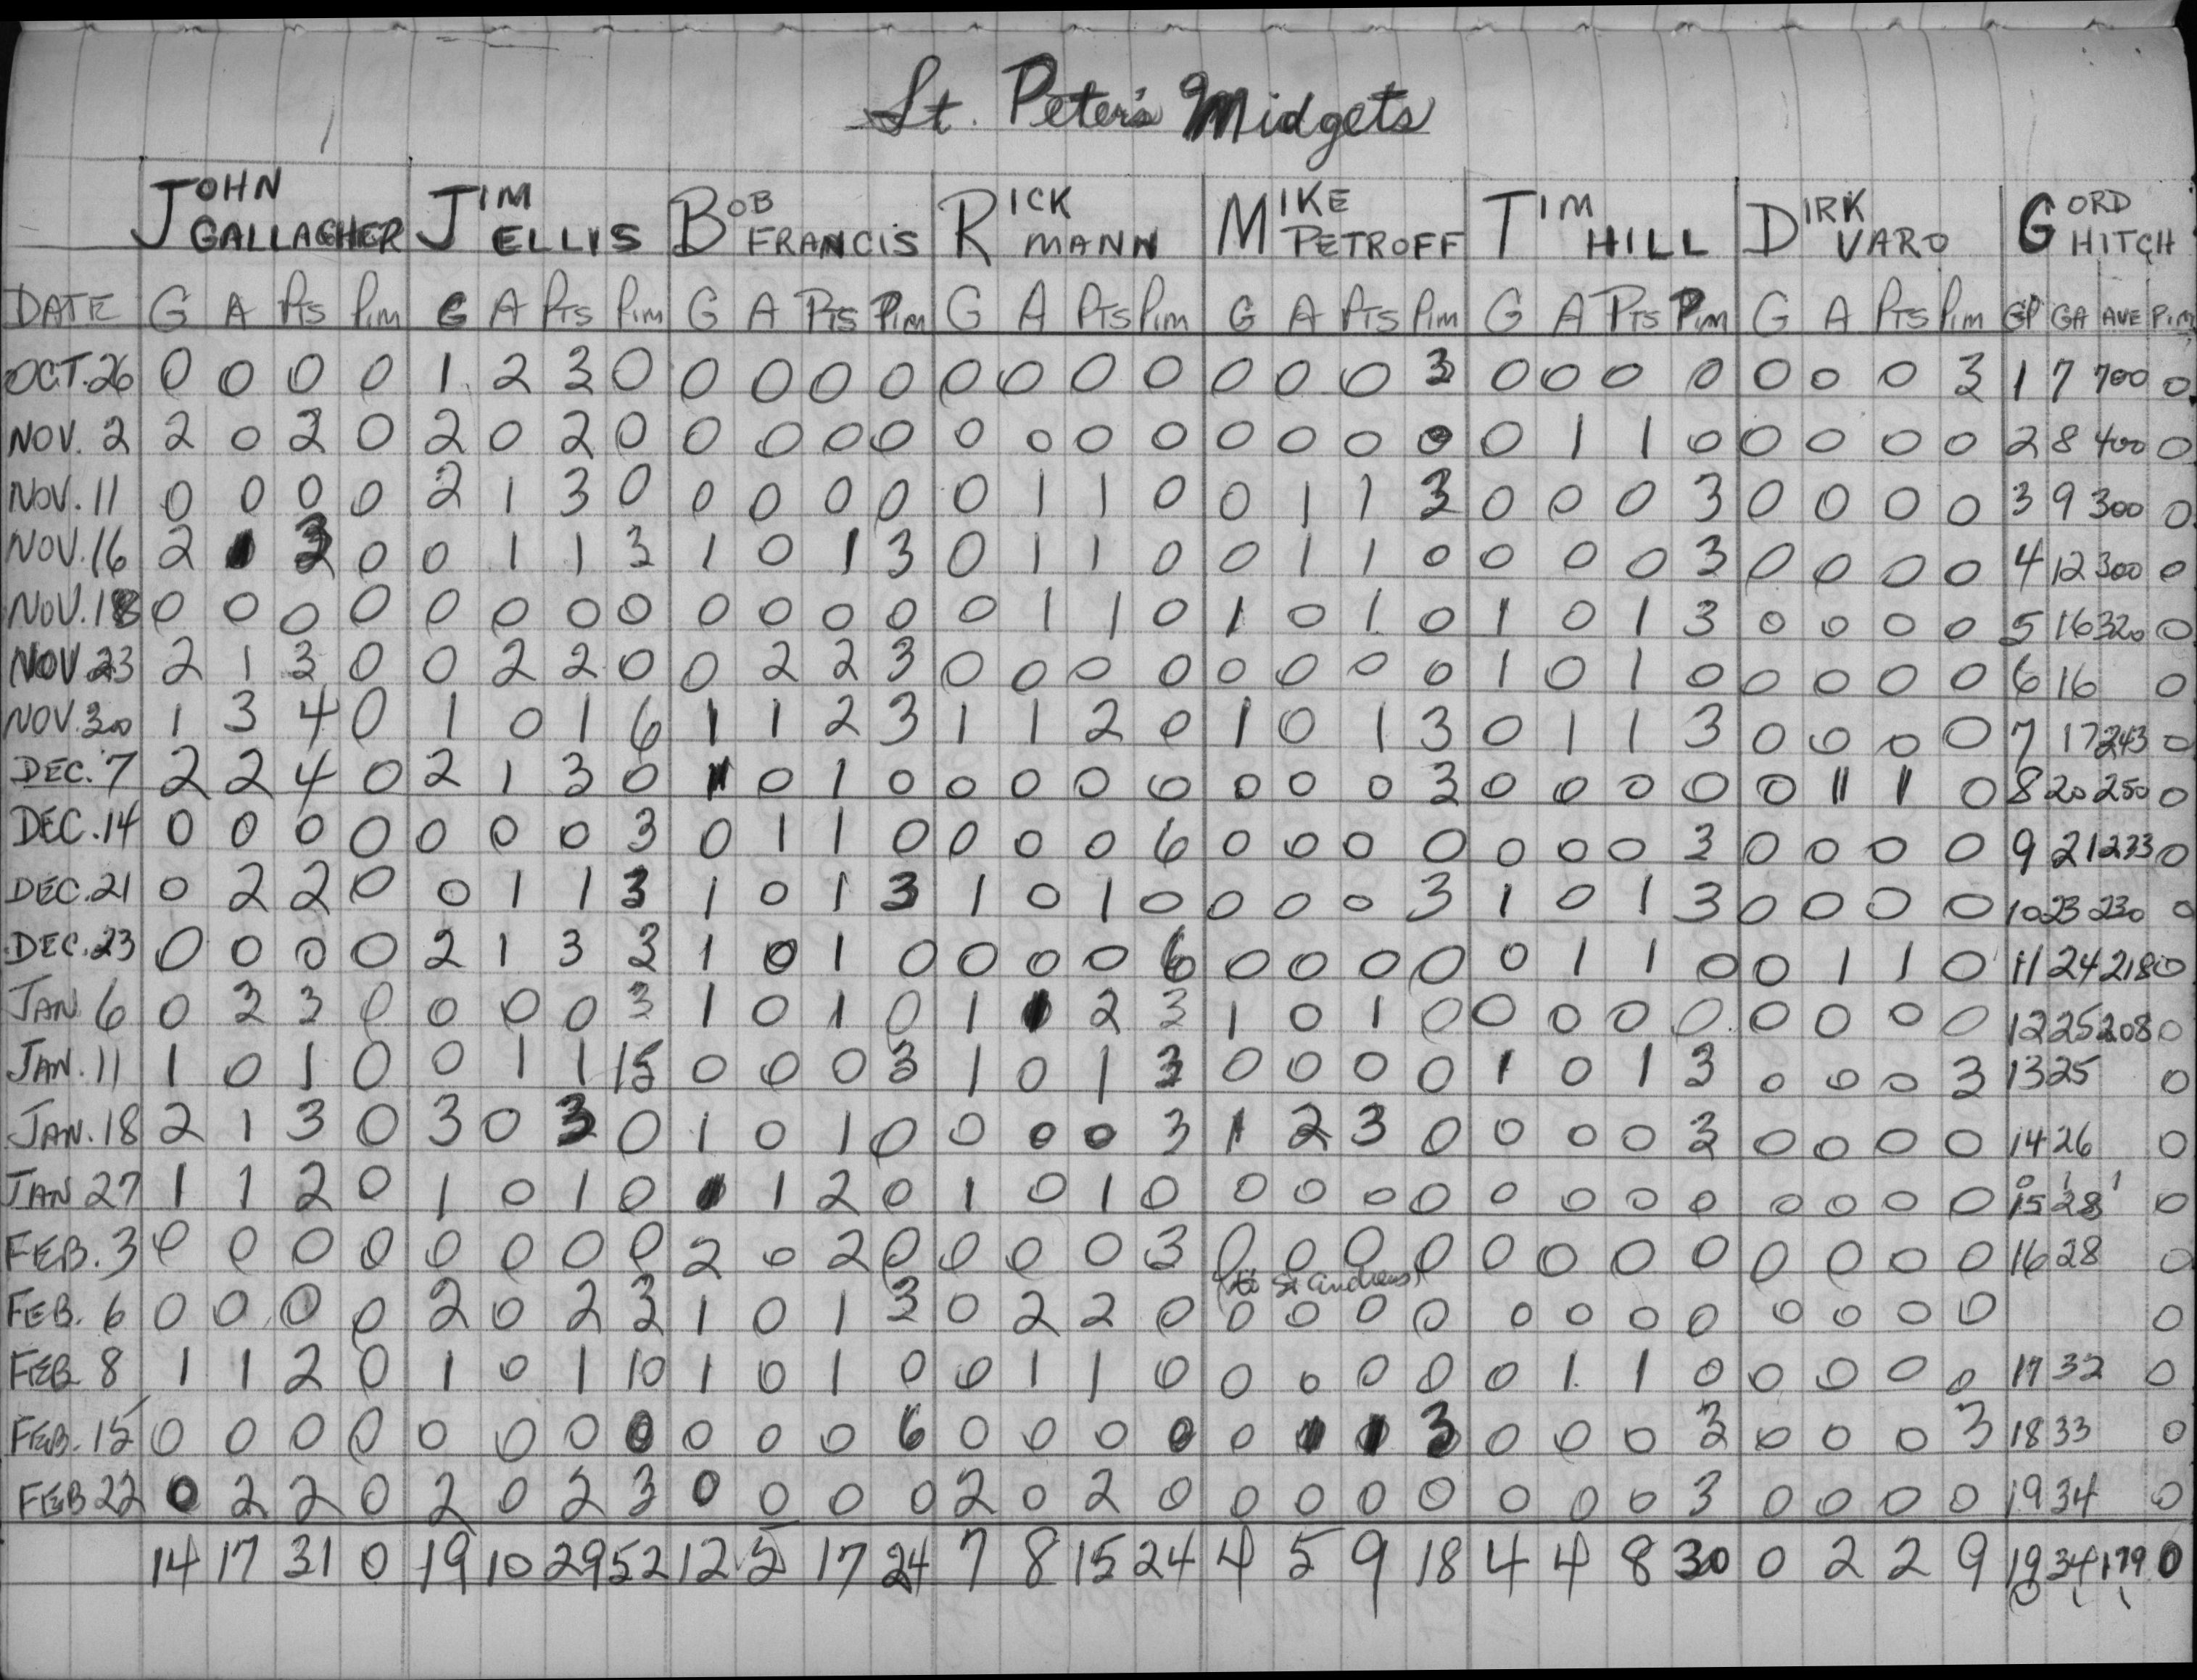 St. Peter's Midgets
JOHN GALLAGHER JIM ELLIS BOB FRANCIS RICK MANN MIKE PETROFF TIM HILL DIRK VARO GORD HITCH
DATE G A PTS PIM G A PTS PIM G A PTS PIM G A PTS PIM G A PTS PIM G A PTS PIM G A PTS PIM GP GA AVE PIM
OCT. 26 0 0 0 0 1 2 3 0 0 0 0 0 0 0 0 0 0 0 0 3 0 0 0 0 0 0 0 3 1 7 700 0
NOV. 2 2 0 2 0 2 0 2 0 0 0 0 0 0 0 0 0 0 0 0 0 0 1 1 0 0 0 0 0 2 8 400 0
NOV. 11 0 0 0 0 2 1 3 0 0 0 0 0 0 1 1 0 0 1 1 3 0 0 0 3 0 0 0 0 3 9 300 0
NOV. 16 2 1 3 0 0 1 1 3 1 0 1 3 0 1 1 0 0 1 1 0 0 0 0 3 0 0 0 0 4 12 300 0
NOV. 18 0 0 0 0 0 0 0 0 0 0 0 0 0 1 1 0 1 0 1 0 1 0 1 3 0 0 0 0 5 16 320 0
NOV 23 2 1 3 0 0 2 2 0 0 2 2 3 0 0 0 0 0 0 0 0 1 0 1 0 0 0 0 0 6 16 0
NOV. 30 1 3 4 0 1 0 1 6 1 1 2 3 1 1 2 0 1 0 1 3 0 1 1 3 0 0 0 0 7 17 243 0
DEC. 7 2 2 4 0 2 1 3 0 1 0 1 0 0 0 0 0 0 0 0 3 0 0 0 0 0 1 1 0 8 20 250 0
DEC. 14 0 0 0 0 0 0 0 3 0 1 1 0 0 0 0 6 0 0 0 0 0 0 0 3 0 0 0 0 9 21 233 0
DEC. 21 0 2 2 0 0 1 1 3 1 0 1 3 1 0 1 0 0 0 0 3 1 0 1 3 0 0 0 0 10 23 230 0
DEC. 23 0 0 0 0 2 1 3 3 1 0 1 0 0 0 0 6 0 0 0 0 0 1 1 0 0 1 1 0 11 24 218 0
JAN 6 0 3 3 0 0 0 0 3 1 0 1 0 1 1 2 3 1 0 1 0 0 0 0 0 0 0 0 0 12 25 208 0
JAN. 11 1 0 1 0 0 1 1 15 0 0 0 3 1 0 1 3 0 0 0 0 1 0 1 3 0 0 0 3 13 25 0
JAN. 18 2 1 3 0 3 0 3 0 1 0 1 0 0 0 0 3 1 2 3 0 0 0 0 3 0 0 0 0 14 26 0
JAN 27 1 1 2 0 1 0 1 0 1 1 2 0 1 0 1 0 0 0 0 0 0 0 0 0 0 0 0 0 15 28 0
FEB. 3 0 0 0 0 0 0 0 0 2 0 2 0 0 0 0 3 0 0 0 0 0 0 0 0 0 0 0 0 16 28 0
St Andrews
FEB. 6 0 0 0 0 2 0 2 3 1 0 1 3 0 2 2 0 0 0 0 0 0 0 0 0 0 0 0 0 0
FEB. 8 1 1 2 0 1 0 1 10 1 0 1 0 0 1 1 0 0 0 0 0 0 1 1 0 0 0 0 0 17 32 0
FEB. 15 0 0 0 0 0 0 0 0 0 0 0 6 0 0 0 0 0 1 1 3 0 0 0 3 0 0 0 3 18 33 0
FEB 22 0 2 2 0 2 0 2 3 0 0 0 0 2 0 2 0 0 0 0 0 0 0 0 3 0 0 0 0 19 34 0
14 17 31 0 19 10 29 52 12 5 17 24 7 8 15 24 4 5 9 18 4 4 8 30 0 2 2 9 19 34 1.79 0